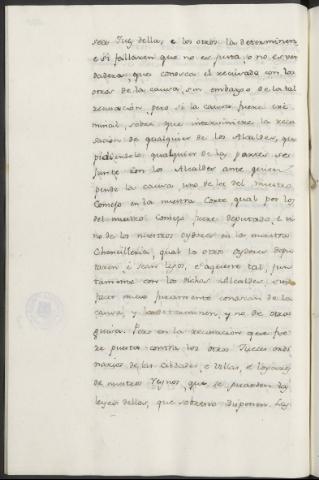 seas Juez della, e los otros la determinen
e si fallaren que no es justa, o no es ver
dadera, que conosca el recusado con los
otros de la causa, sin embargo de la tal
recusación, pero si la causa fuere cri
minal, sobre que interviniere la recu
sación de qualquier de los Alcaldes, que
pidiendolo qualquier de las partes se
junte con los Alcaldes ante quien
pende la causa uno de los del nuestro
Consejo en la nuestra Corte qual por los
del nuestro Consejo fuere deputado, e u
no de los nuestros oydores en la nuestra
Chancilleria, qual los otros oydores depu
taren e sean lejos, e aqueste tal, jun
tamente con los dichos Alcaldes
faser nuevo juramento conoscan de la
causa, y la determinen, y no de otra
guisa. Pero en la recusacion que fue
re puesta contra los otros Jueces ordi
narios de las Cibdades, e Villas, e logares
de nuestros Reynos, que se guarden las
leyes dellas, que sobresto disponen. Ley